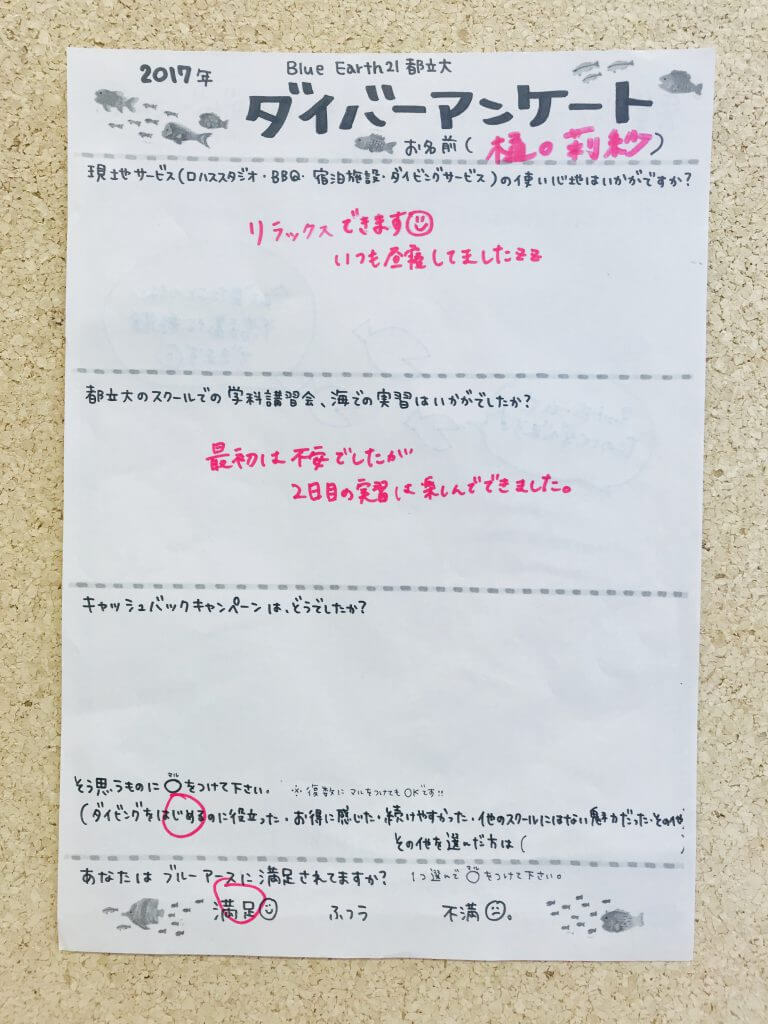 2017年
Blue Earth21 都立大
ダイバーアンケート
お名前(
現地サービス(ロハススタジオ・BBQ・宿泊施設・ダイビングサービス)の使い心地はいかがですか?
リラックスできます
いつも昼寝してましたzz
都立大のスクールでの学科講習会、海での実習はいかがでしたか?
最初は不安でしたが
2日目の実習は楽しんでできました。
キャッシュバックキャンペーンは、どうでしたか?
そう思うものに○をつけて下さい。 ※複数にマルをつけてもOKです!!
マル
(ダイビングをはじめるのに役立った・お得に感じた・続けやすかった・他のスクールにはない魅力だった・その他
その他を選んだ方は( )
あなたはブルーアースに満足されてますか? 1つ選んで○をつけて下さい。
満足 ふつう 不満。